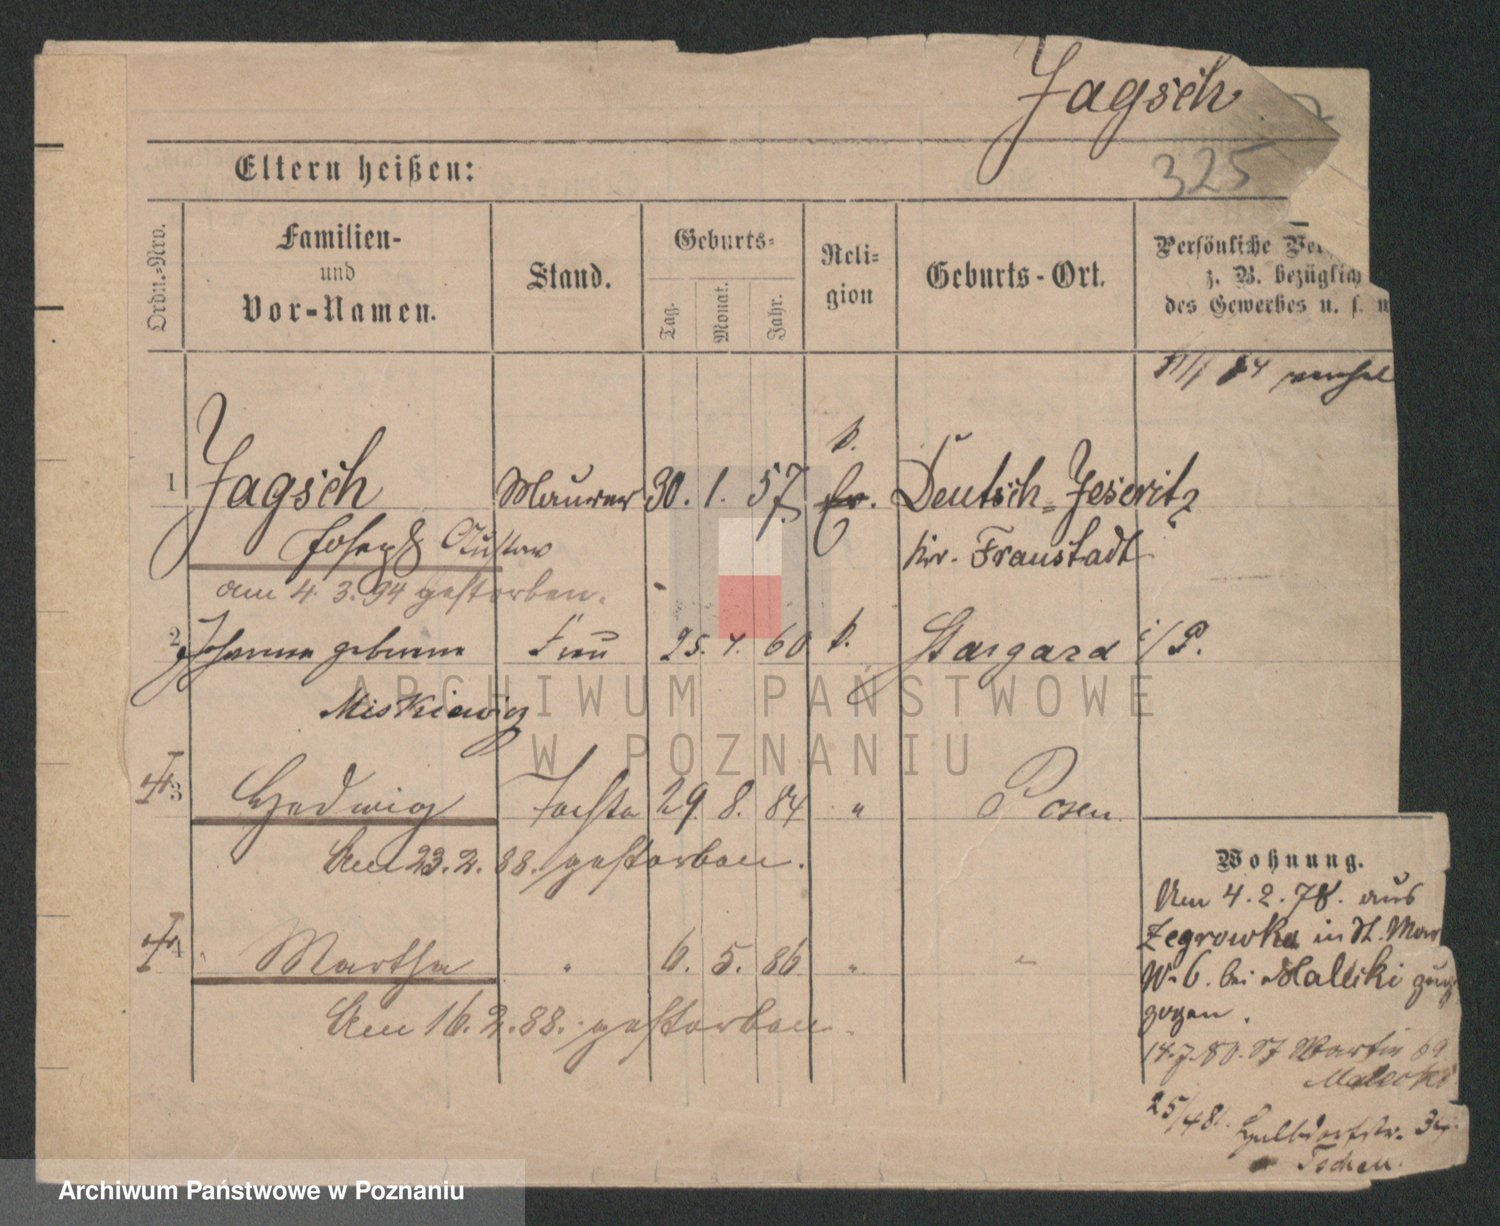 Jagsch
325
Eltern heißen:
Ordn.-Nro.
Familien-
und
Vor-Namen.
Stand.
Geburts-
Tag.
Monat.
Jahr.
Reli-
gion
Geburts-Ort.
Persönliche Ver
z. B. bezüglich
des Gewerbes u. s. w
84
1 Jagsch Maurer 30. 1. 57. Ev. k. Deutsch-Jeseritz
Joseph Gustav Kr. Fraustadt
am 4. 3. 94 gestorben.
2 Johanna geborene Frau 25. 4. 60 k. Stargard i/P.
Miskiewicz
3 Hedwig Tochter 29. 8. 84 " Posen
Am 23. 2. 88. gestorben.
4 Martha " 6. 5. 86 " "
Am 16. 2. 88. gestorben.
Wohnung.
Am 4. 2. 78. aus
Zegrowka in St. Mar
N. 6. bei Malecki zuge
zogen.
14.7.80. St Martin 69
Malecki
25/4 81.
ARCHIWUM PAŃSTWOWE
W POZNANIU
Archiwum Państwowe w Poznaniu